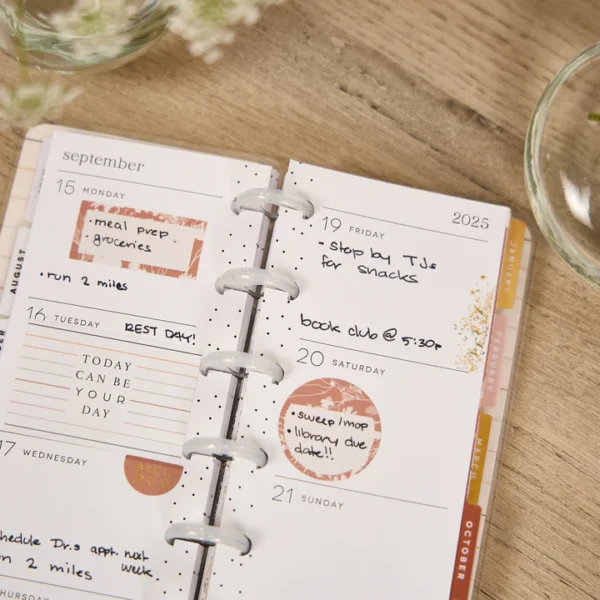 september
15 MONDAY
• meal prep
• groceries
• run 2 miles
16 TUESDAY
REST DAY!
TODAY
CAN BE
YOUR
DAY
17 WEDNESDAY
hedule Dr.s appt. next
week.
n 2 miles
HURSDAY
2025
19 FRIDAY
• stop by TJs
for snacks
book club @ 5:30p
20 SATURDAY
• sweep/mop
• library due
date!!
21 SUNDAY
AUGUST
JANUARY
FEBRUARY
MARCH
OCTOBER